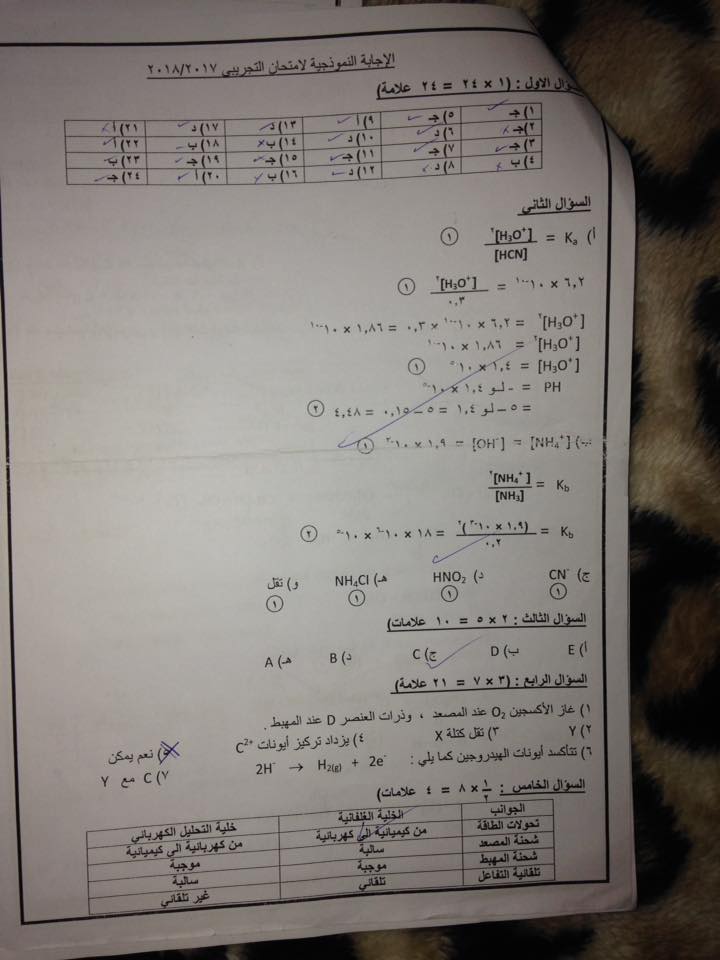 الإجابة النموذجية لامتحان التجريبي ٢٠١٨/٢٠١٧
السؤال الاول : (١ × ٢٤ = ٢٤ علامة)
١) جـ ٥) جـ ٩) أ ١٣) د ١٧) د ٢١) أ
٢) جـ ٦) د ١٠) د ١٤) ب ١٨) ب ٢٢) أ
٣) جـ ٧) جـ ١١) جـ ١٥) جـ ١٩) جـ ٢٣) ب
٤) ب ٨) د ١٢) د ١٦) ب ٢٠) أ ٢٤) جـ
السؤال الثاني
أ) Kₐ = [H₃O⁺]² / [HCN] ①
٦,٢ × ١٠⁻¹⁰ = [H₃O⁺]² / ٠,٣ ①
[H₃O⁺]² = ٦,٢ × ١٠⁻¹⁰ × ٠,٣ = ١,٨٦ × ١٠⁻¹⁰
[H₃O⁺]² = ١,٨٦ × ١٠⁻¹⁰
[H₃O⁺] = ١,٤ × ١٠⁻⁵ ①
PH = - لـو ١,٤ × ١٠⁻⁵
= ٥ – لو ١,٤ = ٥ – ٠,١٥ = ٤,٤٨ ②
ب) [NH₄⁺] = [OH⁻] = ١,٩ × ١٠⁻³ ①
K_b = [NH₄⁺]² / [NH₃]
K_b = (١,٩ × ١٠⁻³)² / ٠,٢ = ١٨ × ١٠⁻⁶ × ١٠⁻⁵ ②
ج) CN⁻ د) HNO₂ هـ) NH₄Cl و) تقل
① ① ① ①
السؤال الثالث : ٢ × ٥ = ١٠ علامات)
أ) E ب) D ج) C د) B هـ) A
السؤال الرابع : (٣ × ٧ = ٢١ علامة)
١) غاز الأكسجين O₂ عند المصعد ، وذرات العنصر D عند المهبط .
٢) Y ٣) تقل كتلة X ٤) يزداد تركيز أيونات C²⁺ ٥) نعم يمكن
٦) تتأكسد أيونات الهيدروجين كما يلي : 2H⁻ → H₂(g) + 2e⁻ ٧) C مع Y
السؤال الخامس : ½ × ٨ = ٤ علامات)
الجوانب الخلية الغلفانية خلية التحليل الكهربائي
تحولات الطاقة من كيميائية الى كهربائية من كهربائية الى كيميائية
شحنة المصعد سالبة موجبة
شحنة المهبط موجبة سالبة
تلقائية التفاعل تلقائي غير تلقائي